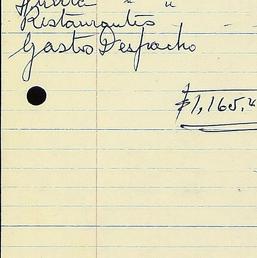 " "
Restaurantes
Gastos Despacho
$1,165.